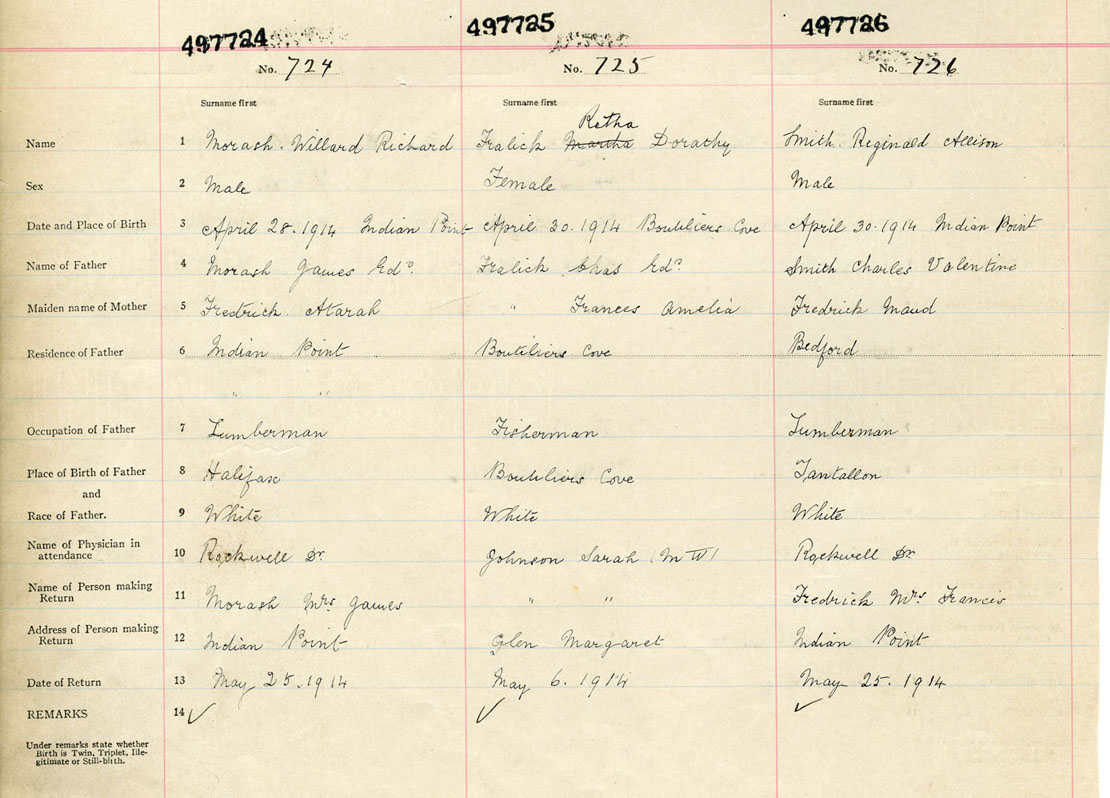 497724 497725 497726
No. 724 No. 725 No. 726
Surname first Surname first Surname first
Retha
Name 1 Morash. Willard Richard Fralick Martha Dorathy Smith. Reginald Allison
Sex 2 Male Female Male
Date and Place of Birth 3 April 28. 1914 Indian Point April 30. 1914 Boutiliers Cove April 30. 1914 Indian Point
Name of Father 4 Morash James Edd. Fralick Chas Edd. Smith Charles Valentine
Maiden name of Mother 5 Fredrick. Atarah " Frances Amelia Fredrick Maud
Residence of Father 6 Indian Point Boutiliers Cove Bedford
" "
Occupation of Father 7 Lumberman Fisherman Lumberman
Place of Birth of Father 8 Halifax Boutiliers Cove Tantallon
and
Race of Father. 9 White White White
Name of Physician in
attendance 10 Rockwell Dr. Johnson Sarah (M W) Rockwell Dr
Name of Person making
Return 11 Morash Mrs James " " Fredrick Mrs Francis
Address of Person making
Return 12 Indian Point Glen Margaret Indian Point
Date of Return 13 May 25. 1914 May 6. 1914 May 25. 1914
REMARKS 14 ✓ ✓ ✓
Under remarks state whether
Birth is Twin, Triplet, Ille-
gitimate or Still-birth.